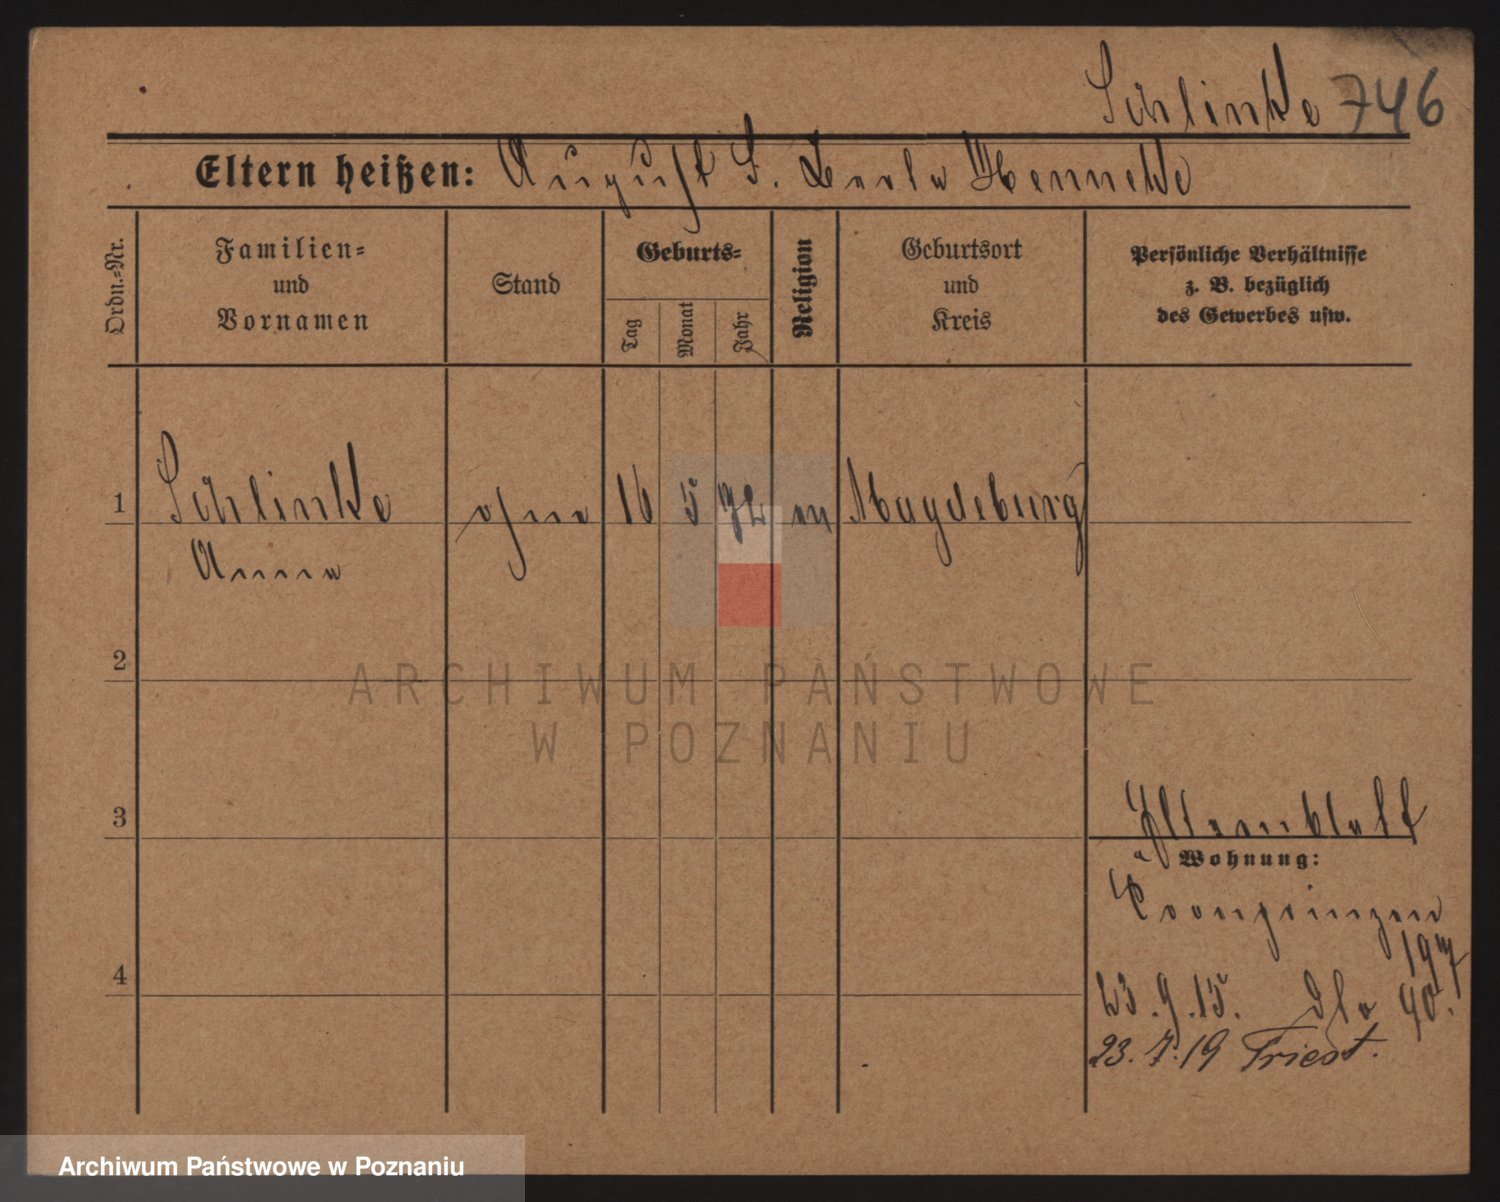 Schlinke 746
Eltern heißen: August S. Hennecke
Ordn.-Nr.
Familien-
und
Vornamen
Stand
Geburts-
Tag
Monat
Jahr
Religion
Geburtsort
und
Kreis
Persönliche Verhältnisse
z. B. bezüglich
des Gewerbes usw.
1 Schlinke ohne 16 5 72 ev Magdeburg
Anna
2
3
Elternblatt
Wohnung:
Cronprinzen
197
4
23.9.15. dto 40.
23.7.19 Triest.
ARCHIWUM PAŃSTWOWE
W POZNANIU
Archiwum Państwowe w Poznaniu